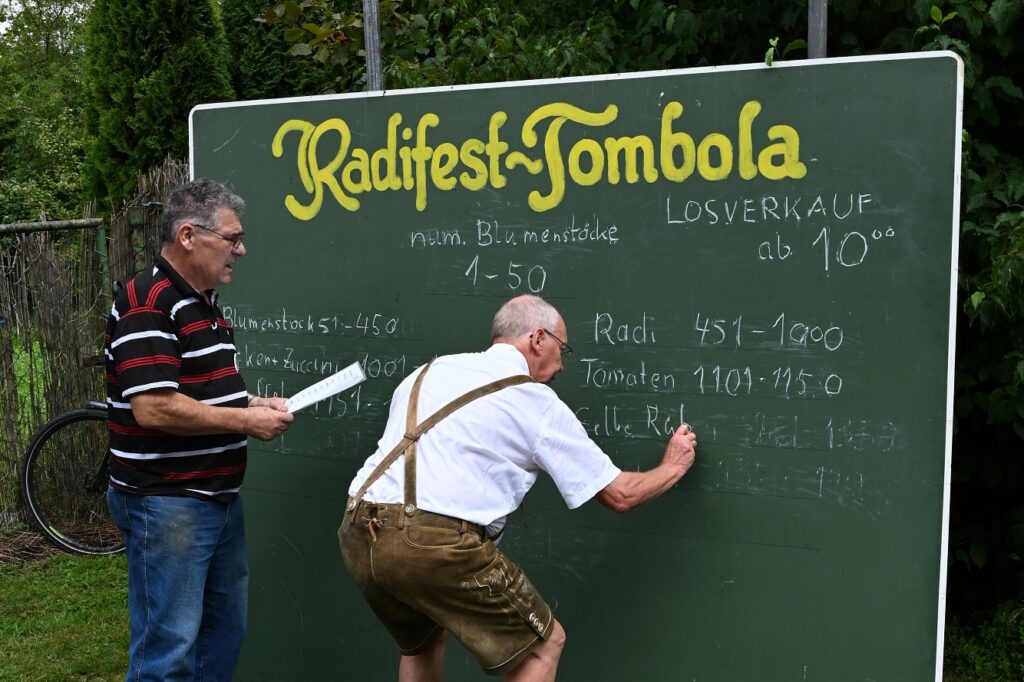 Radifest~Tombola
LOSVERKAUF
ab 10⁰⁰
num. Blumenstöcke
1-50
Blumenstock 51-450
1001
151-1
Radi 451-1000
Tomaten 1101-1150
Gelbe Rüb